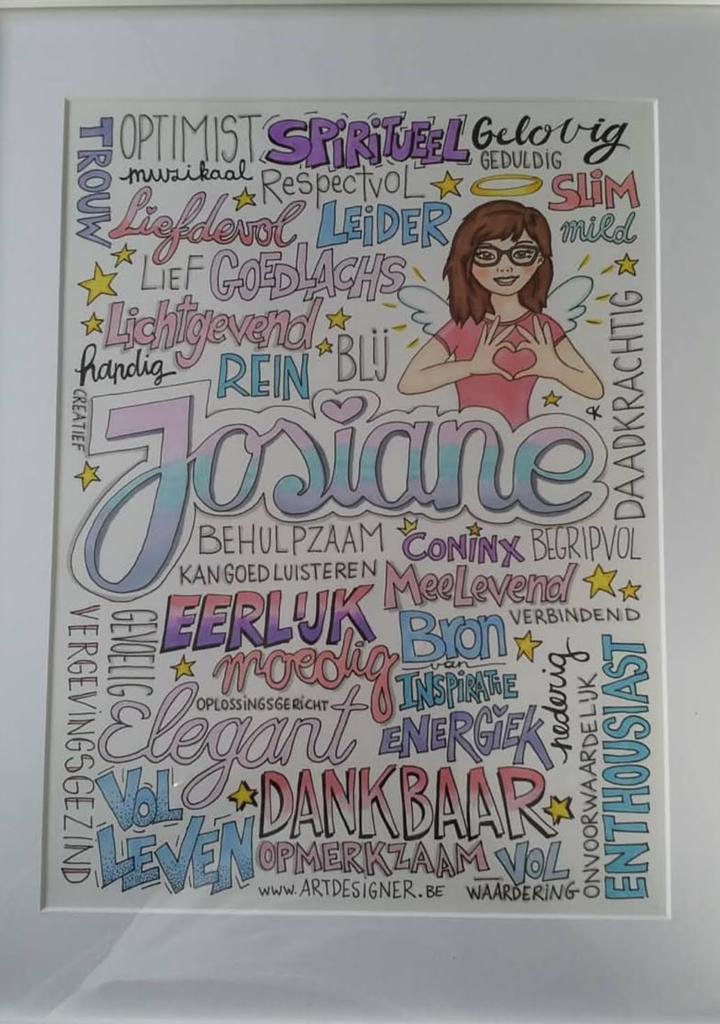 TROUW
OPTIMIST
SPiRiTUEEL
Gelovig
muzikaal
RESPECTVOL
GEDULDIG
SLiM
Liefdevol
LEiDER
mild
LiEF
GOEDLACHS
Lichtgevend
handig
REIN
BLIJ
CREATIEF
DAADKRACHTIG
Josiane
BEHULPZAAM
CONINX
BEGRIPVOL
KAN GOED LUISTEREN
MeeLevend
EERLIJK
VERBINDEND
GEVOELIG
VERGEVINGSGEZIND
moedig
Bron
van
INSPIRATIE
OPLOSSINGSGERICHT
Elegant
ENERGiEK
nederig
ONVOORWAARDELIJK
ENTHOUSIAST
VOL
LEVEN
DANKBAAR
OPMERKZAAM
VOL
WAARDERING
WWW.ARTDESIGNER.BE